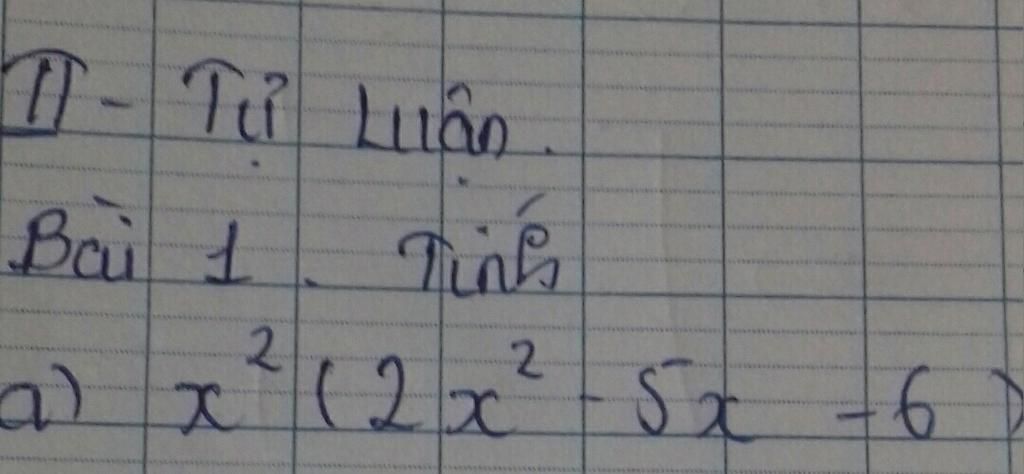 II - Tự Luận.
Bài 1. Tính
a) x² (2x² - 5x - 6)